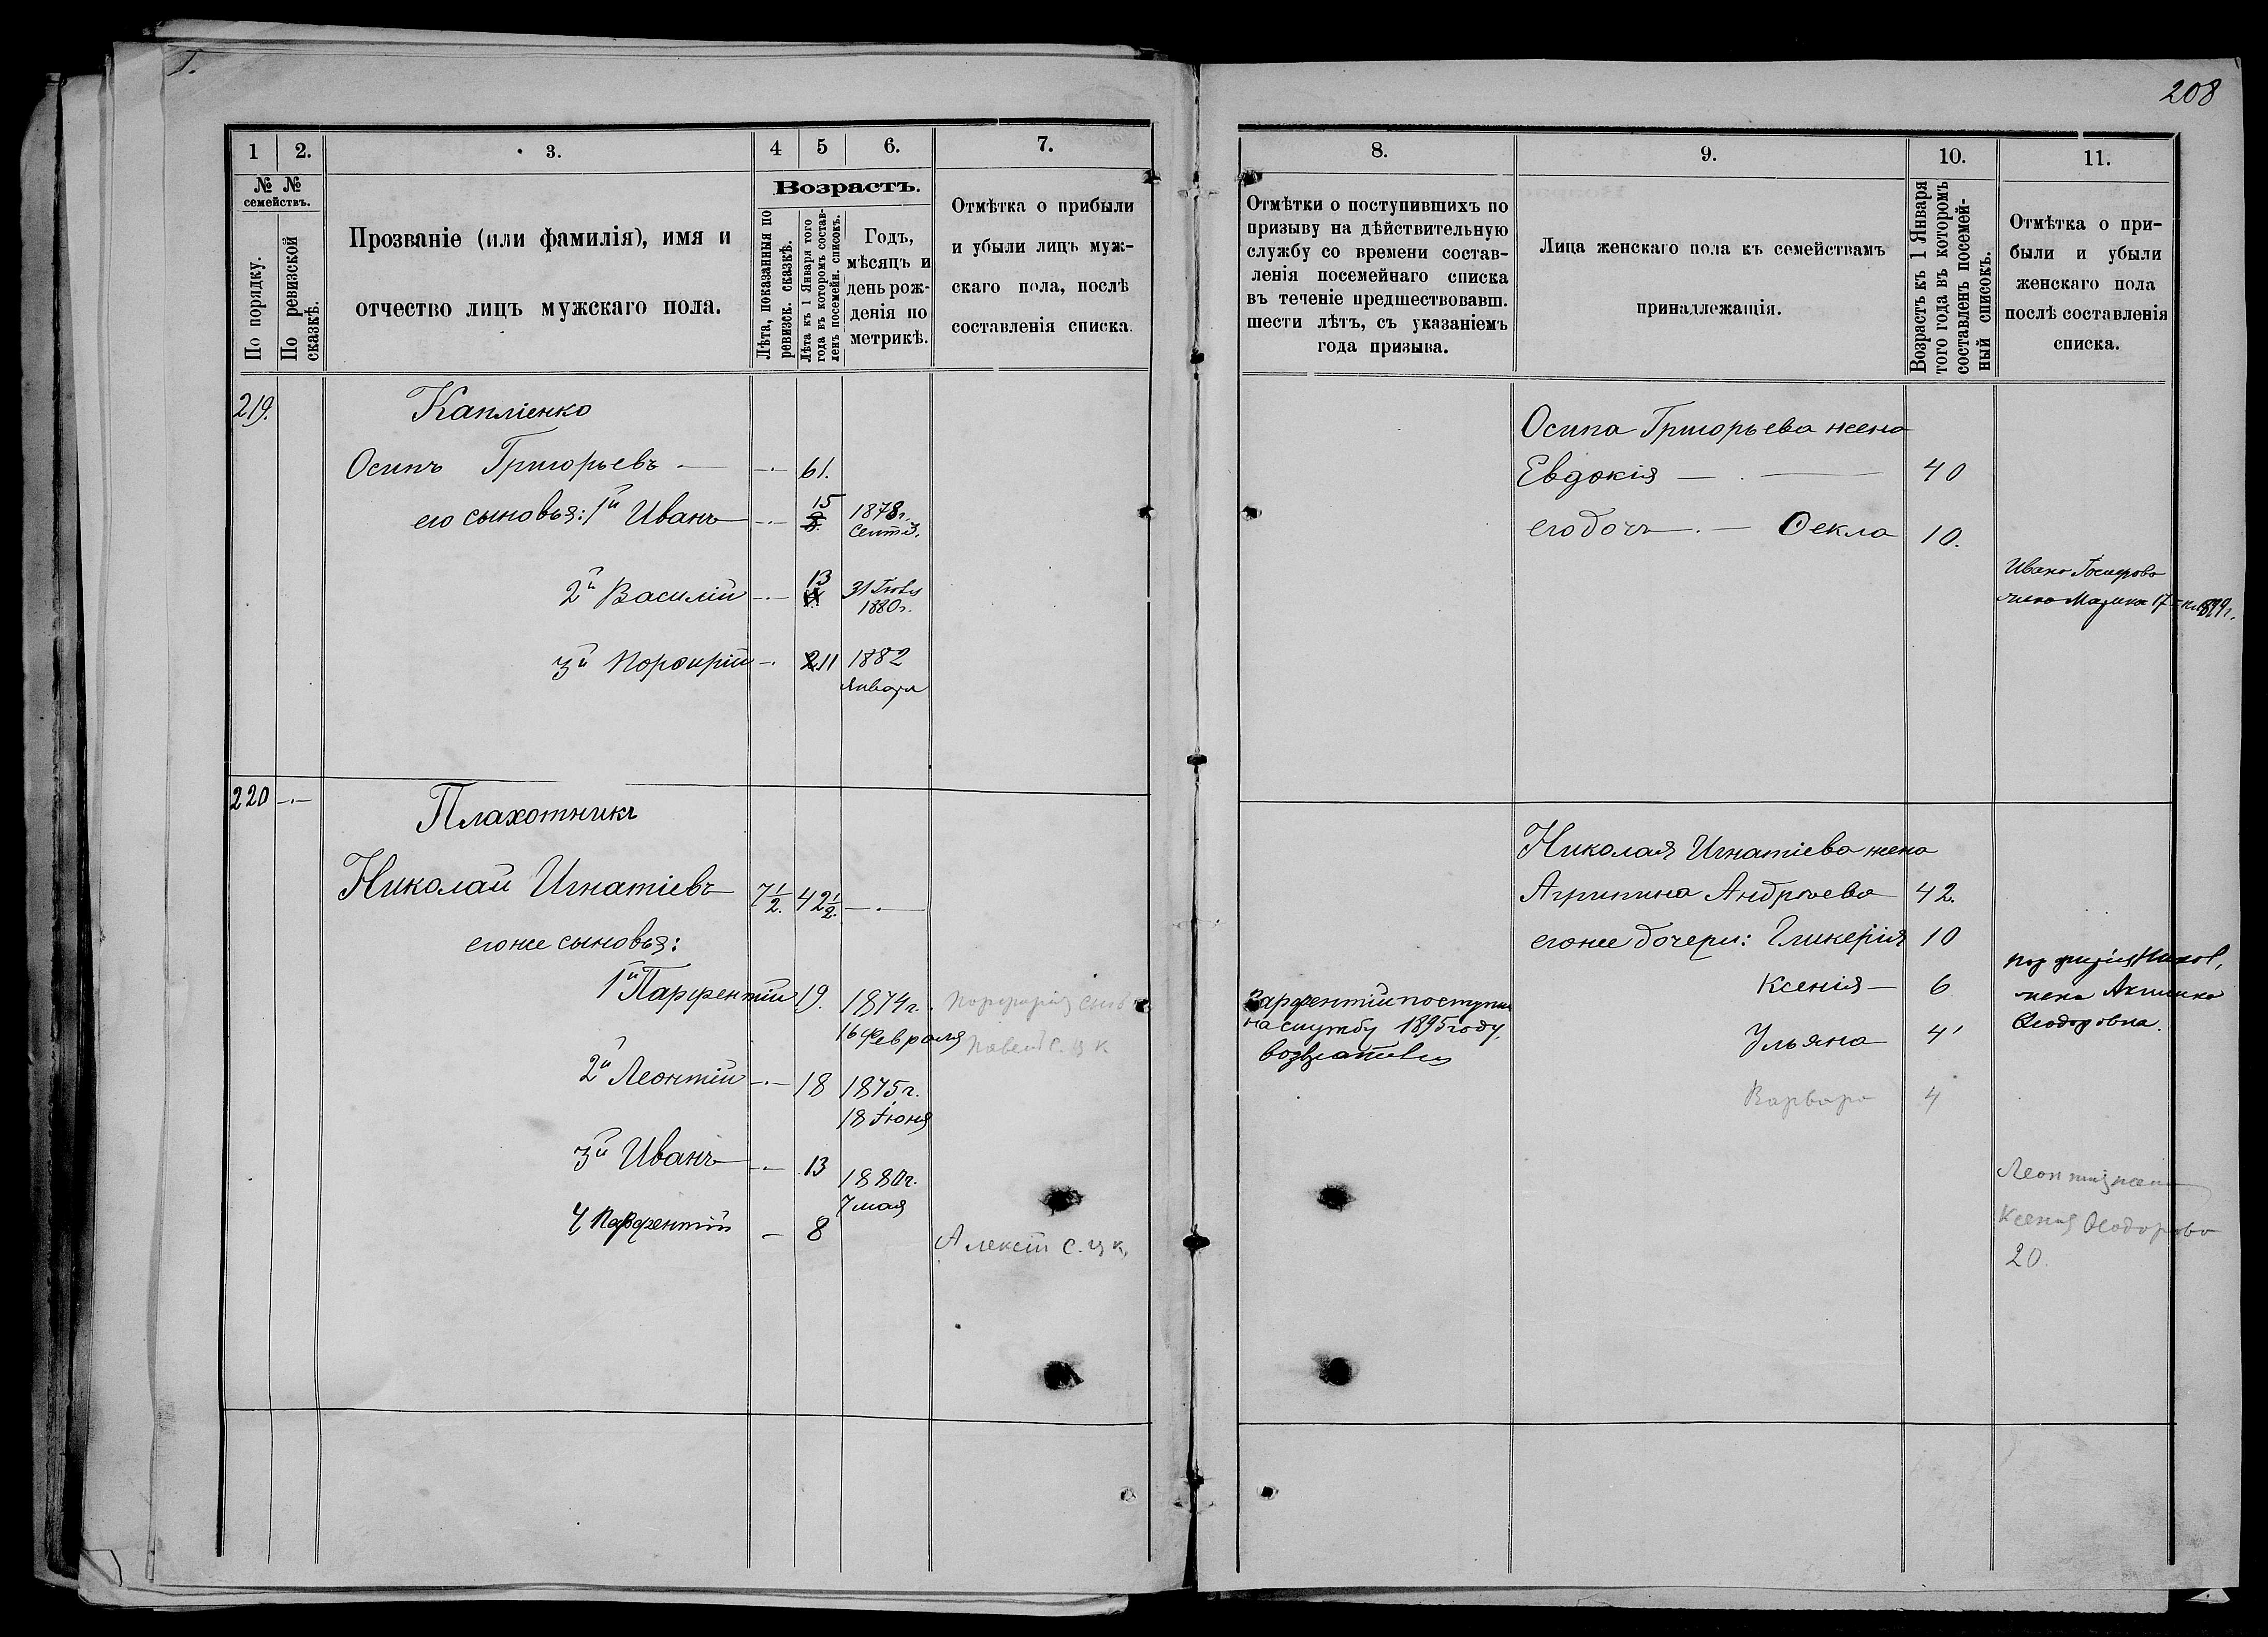 208
1
2.
3.
4
5
6.
7.
№ №
семействъ.
По порядку.
По ревизской
сказкѣ.
Прозваніе (или фамилія), имя и
отчество лицъ мужскаго пола.
Возрастъ.
Лѣта, показанныя по
ревизск. сказкѣ.
Лѣта къ 1 Января того
года въ которомъ состав-
ленъ посемейн. списокъ.
Годъ,
мѣсяцъ и
день рож-
денія по
метрикѣ.
Отмѣтка о прибыли
и убыли лицъ муж-
скаго пола, послѣ
составленія списка.
219.
Капліенко
Осипъ Григорьевъ — 61.
его сыновья: 1й Иванъ 15 1878г.
Сент. 3.
2й Василій 13 31 Генв
1880г.
3й Порфирій 2 11 1882
Января
220
Плахотникъ
Николай Игнатіевъ 7½. 42½.
его же сыновья:
1й Парфентій 19. 1874г.
16 Февраля
2й Леонтій 18 1875г.
18 Іюня
3й Иванъ 13 1880г.
7 мая
4 Парфентій — 8
Павел с. ц к
Алексѣй с. ц к.
8.
9.
10.
11.
Отмѣтки о поступившихъ по
призыву на дѣйствительную
службу со времени состав-
ленія посемейнаго списка
въ теченіе предшествовавш.
шести лѣтъ, съ указаніемъ
года призыва.
Лица женскаго пола къ семействамъ
принадлежащія.
Возрастъ къ 1 Января
того года въ которомъ
составленъ посемей-
ный списокъ.
Отмѣтка о при-
были и убыли
женскаго пола
послѣ составленія
списка.
Осипа Григорьева жена
Евдокія — 40
его дочь — Ѳекла 10.
Ивана
жена 17
Николая Игнатіева жена
Агрипина Андреева 42.
его же дочери: Гликерія 10
Ксенія — 6
Ульяна 4
Варвара 4
Парфентій поступил
на службу 1895 году.
возвратився
жена Акилина
Ѳеодоровна.
Леонтія жена
Ксенія Ѳеодорова
20.